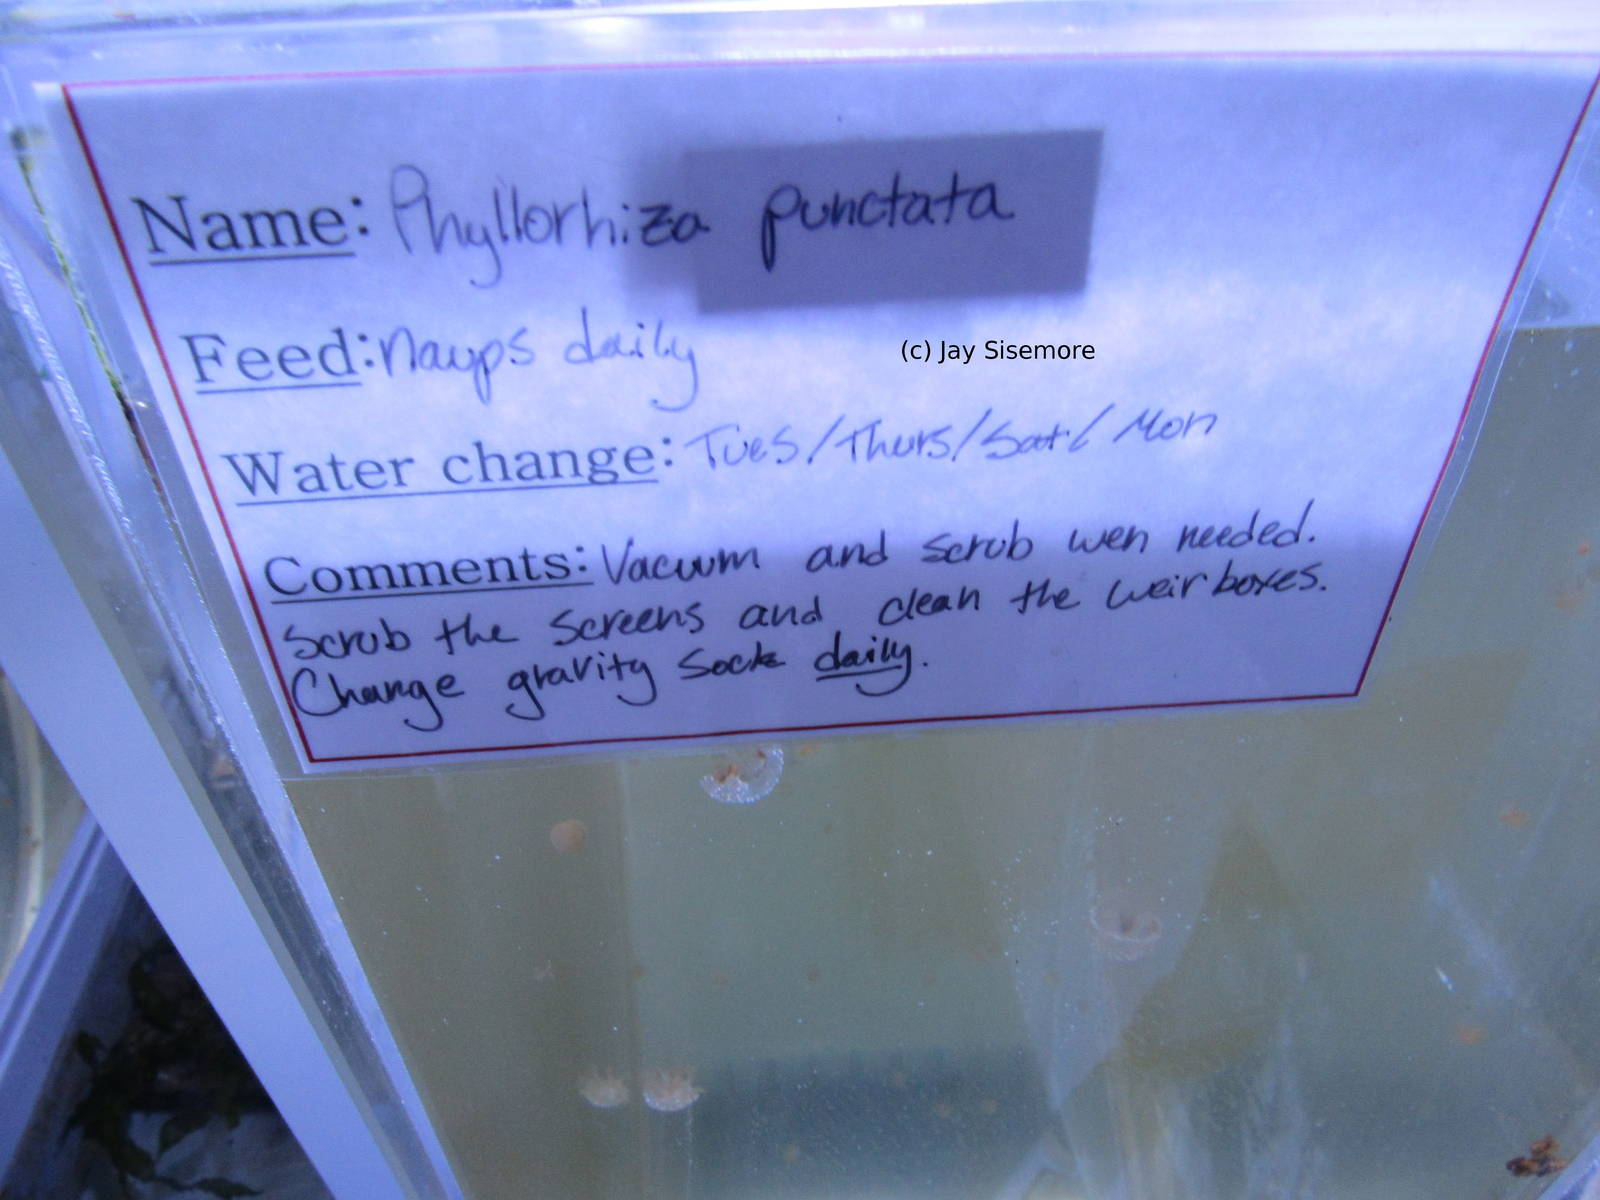 Name: Phyllorhiza punctata
Feed: Naups daily
(c) Jay Sisemore
Water change: Tues/Thurs/Sat/ Mon
Comments: Vacuum and scrub wen needed.
Scrub the screens and clean the weir boxes.
Change gravity sock daily.